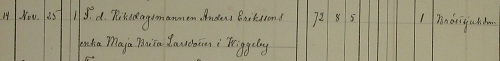 14 Nov. 25 1 F. d. Riksdagsmannen Anders Erikssons 72 8 5 1 Bröstsjukdom
enka Maja Brita Larsdotter i Wiggeby